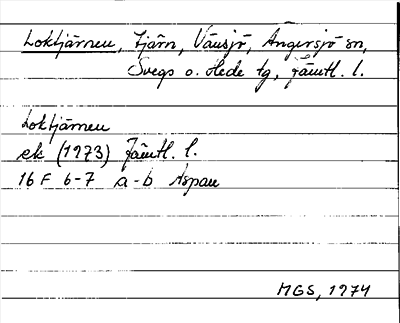 Loktjärnen, tjärn, Vänsjö, Ängersjö sn,
Svegs o. Hede tg, Jämtl. l.
Loktjärnen
ek (1973) Jämtl. l.
16 F 6-7 a-b Aspan
MGS, 1974